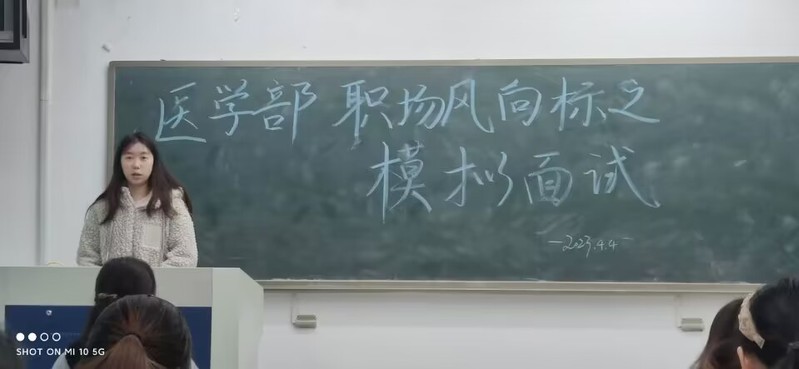 医学部 职场风向标之
模拟面试
-2023.4.4-
SHOT ON MI 10 5G